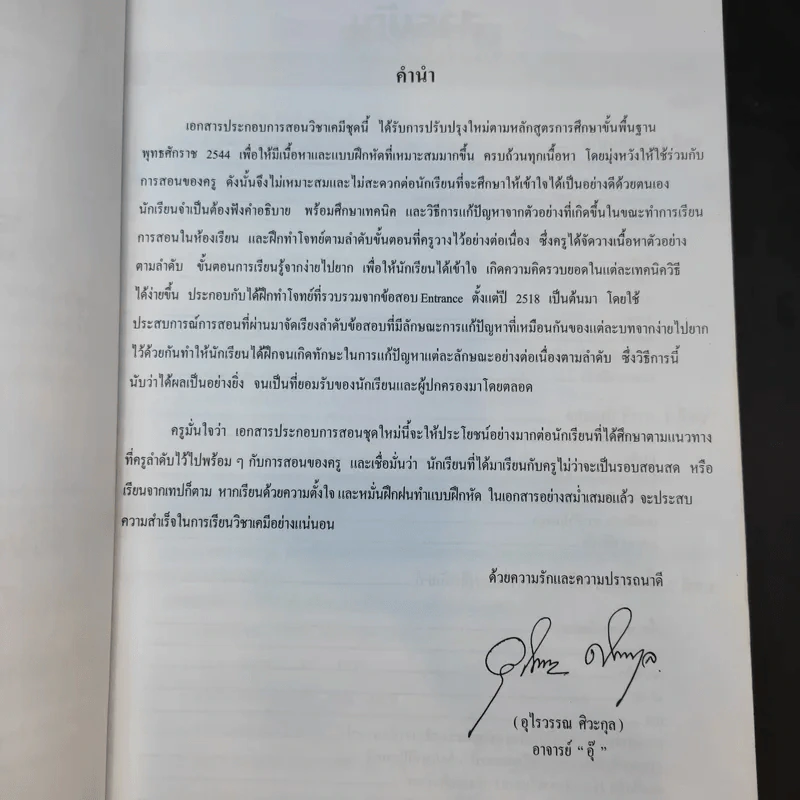 คำนำ
เอกสารประกอบการสอนวิชาเคมีชุดนี้ ได้รับการปรับปรุงใหม่ตามหลักสูตรการศึกษาขั้นพื้นฐาน
พุทธศักราช 2544 เพื่อให้มีเนื้อหาและแบบฝึกหัดที่เหมาะสมมากขึ้น ครบถ้วนทุกเนื้อหา โดยมุ่งหวังให้ใช้ร่วมกับ
การสอนของครู ดังนั้นจึงไม่เหมาะสมและไม่สะดวกต่อนักเรียนที่จะศึกษาให้เข้าใจได้เป็นอย่างดีด้วยตนเอง
นักเรียนจำเป็นต้องฟังคำอธิบาย พร้อมศึกษาเทคนิค และวิธีการแก้ปัญหาจากตัวอย่างที่เกิดขึ้นในขณะทำการเรียน
การสอนในห้องเรียน และฝึกทำโจทย์ตามลำดับขั้นตอนที่ครูวางไว้อย่างต่อเนื่อง ซึ่งครูได้จัดวางเนื้อหาตัวอย่าง
ตามลำดับ ขั้นตอนการเรียนรู้จากง่ายไปยาก เพื่อให้นักเรียนได้เข้าใจ เกิดความคิดรวบยอดในแต่ละเทคนิควิธี
ได้ง่ายขึ้น ประกอบกับได้ฝึกทำโจทย์ที่รวบรวมจากข้อสอบ Entrance ตั้งแต่ปี 2518 เป็นต้นมา โดยใช้
ประสบการณ์การสอนที่ผ่านมาจัดเรียงลำดับข้อสอบที่มีลักษณะการแก้ปัญหาที่เหมือนกันของแต่ละบทจากง่ายไปยาก
ไว้ด้วยกันทำให้นักเรียนได้ฝึกจนเกิดทักษะในการแก้ปัญหาแต่ละลักษณะอย่างต่อเนื่องตามลำดับ ซึ่งวิธีการนี้
นับว่าได้ผลเป็นอย่างยิ่ง จนเป็นที่ยอมรับของนักเรียนและผู้ปกครองมาโดยตลอด
ครูมั่นใจว่า เอกสารประกอบการสอนชุดใหม่นี้จะให้ประโยชน์อย่างมากต่อนักเรียนที่ได้ศึกษาตามแนวทาง
ที่ครูลำดับไว้ไปพร้อม ๆ กับการสอนของครู และเชื่อมั่นว่า นักเรียนที่ได้มาเรียนกับครูไม่ว่าจะเป็นรอบสอนสด หรือ
เรียนจากเทปก็ตาม หากเรียนด้วยความตั้งใจ และหมั่นฝึกฝนทำแบบฝึกหัด ในเอกสารอย่างสม่ำเสมอแล้ว จะประสบ
ความสำเร็จในการเรียนวิชาเคมีอย่างแน่นอน
ด้วยความรักและความปรารถนาดี
( อุไรวรรณ ศิวะกุล )
อาจารย์ “ อุ๊ ”